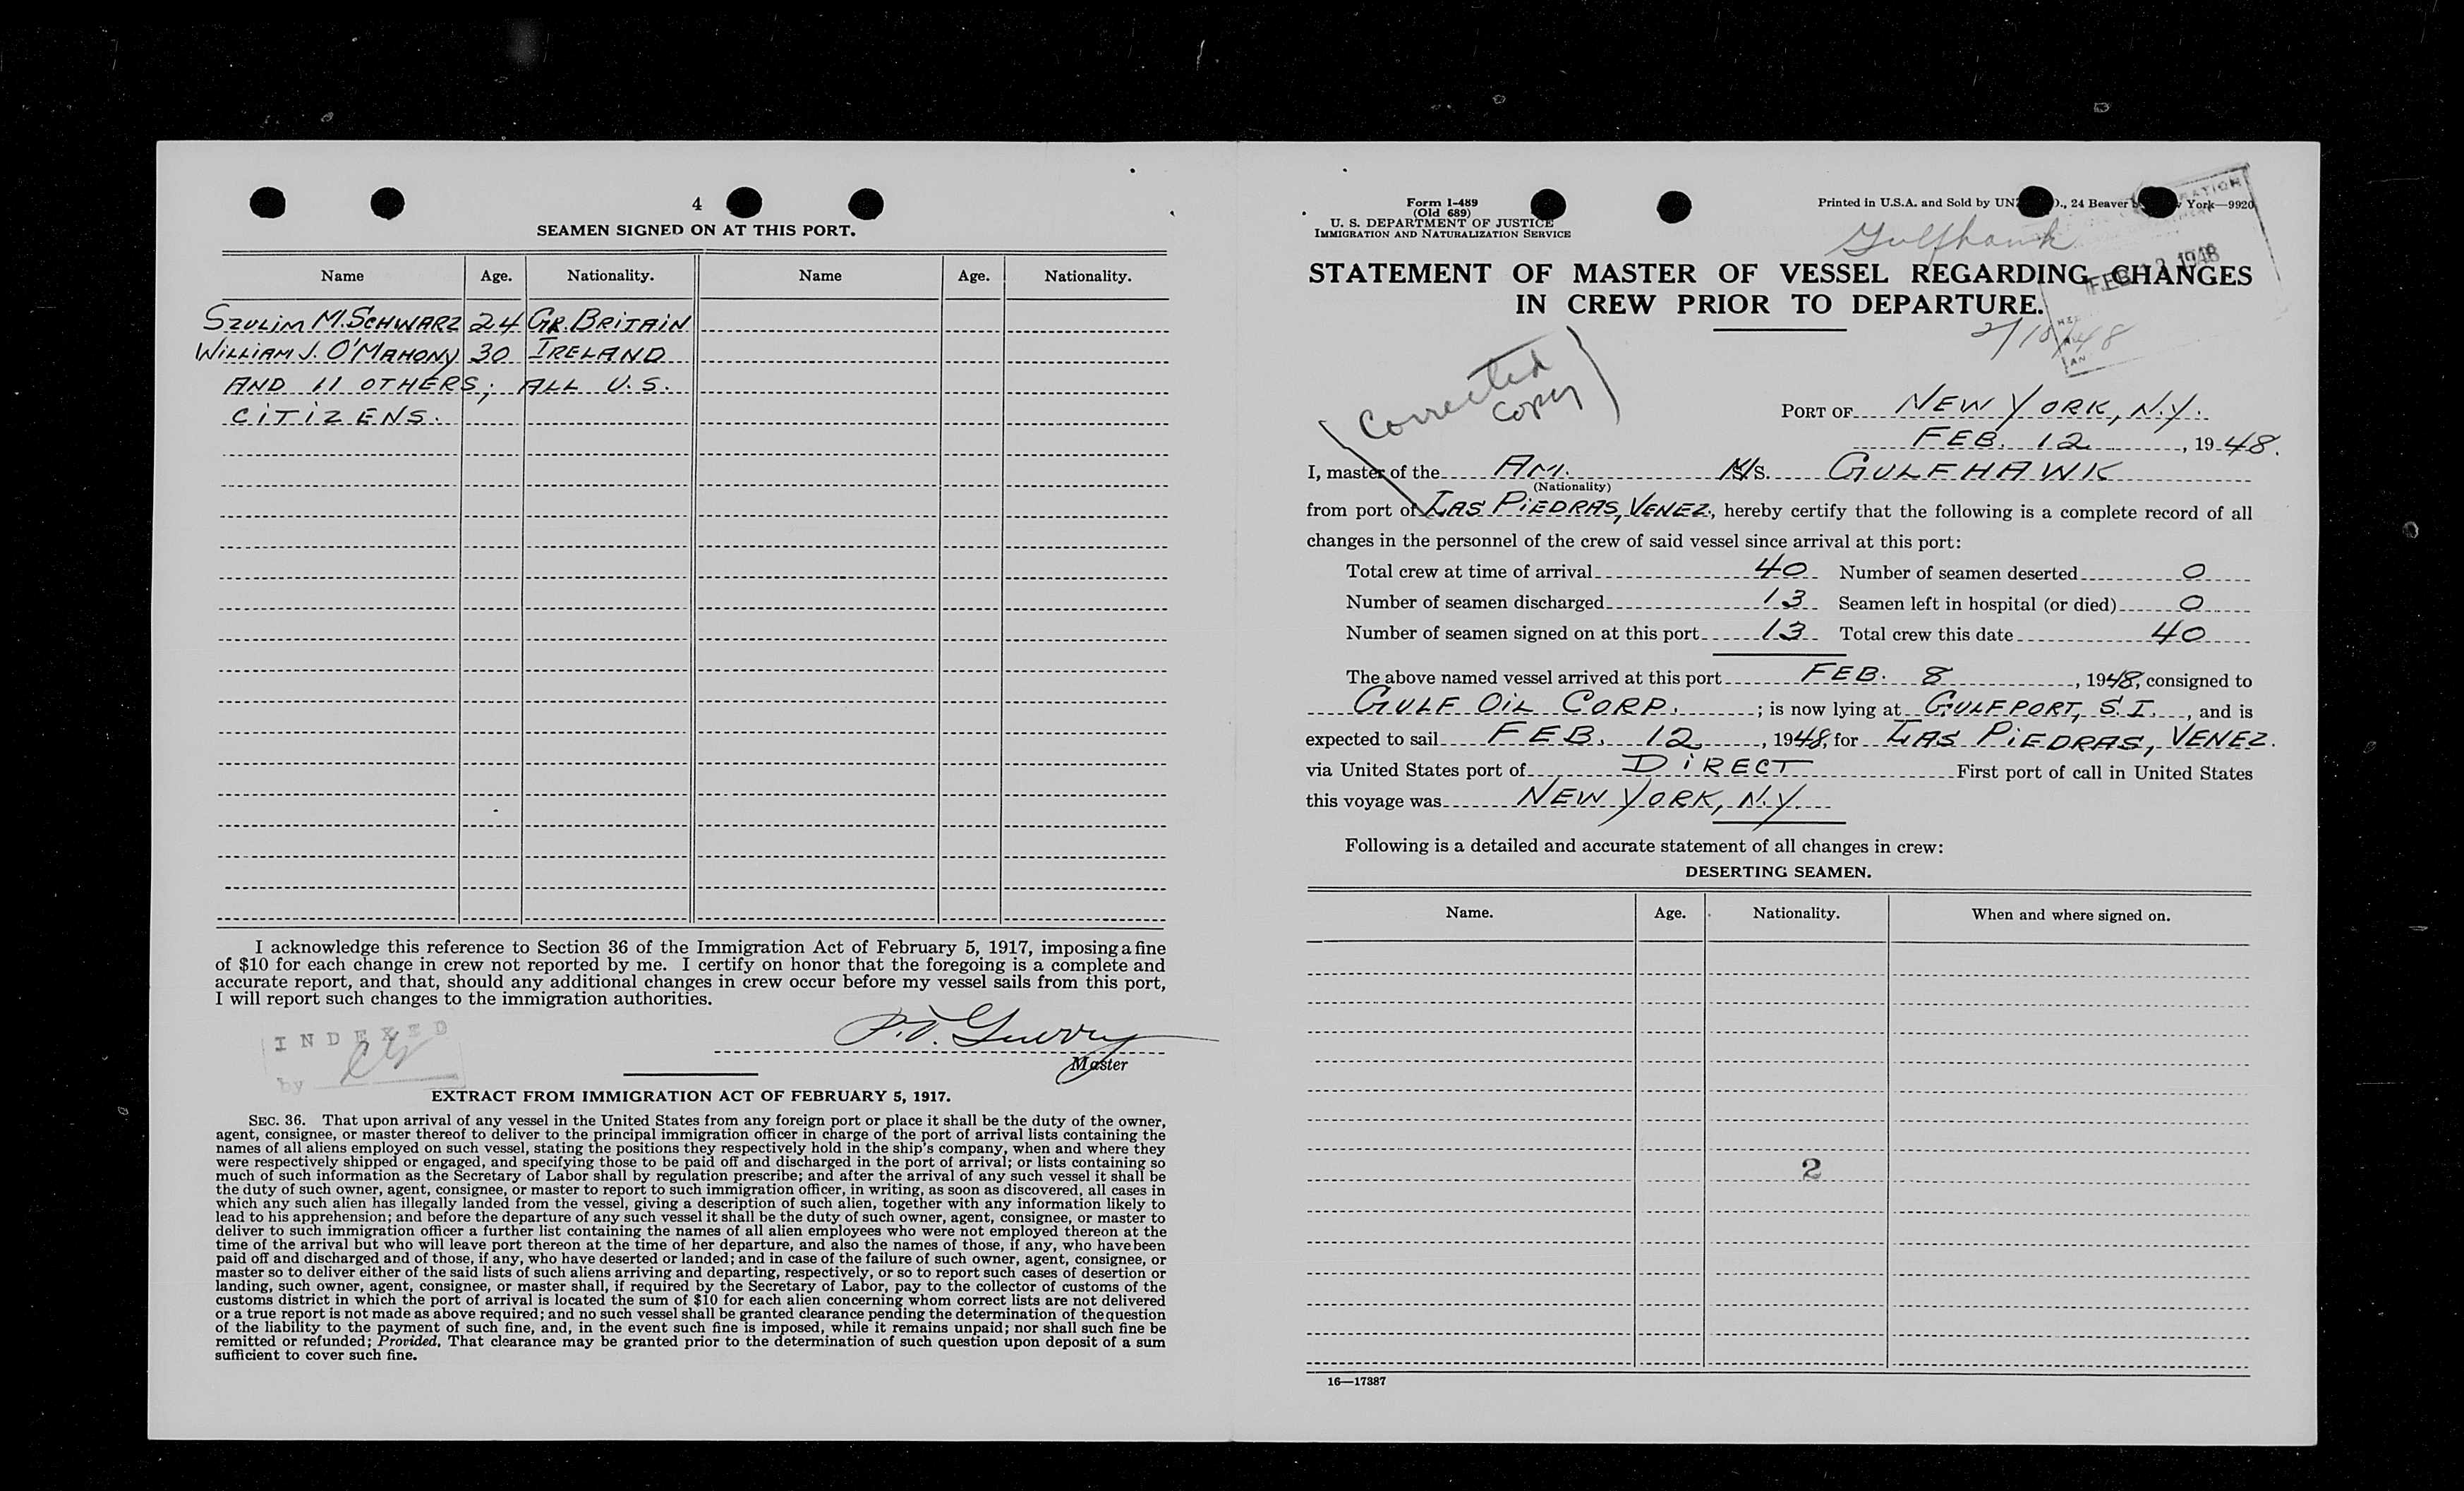 4
SEAMEN SIGNED ON AT THIS PORT.
Name Age. Nationality. Name Age. Nationality.
SZULIM M. SCHWARZ 24 GR. BRITAIN
WILLIAM J. O'MAHONY 30 IRELAND
AND 11 OTHERS; ALL U.S.
CITIZENS.
I acknowledge this reference to Section 36 of the Immigration Act of February 5, 1917, imposing a fine
of $10 for each change in crew not reported by me. I certify on honor that the foregoing is a complete and
accurate report, and that, should any additional changes in crew occur before my vessel sails from this port,
I will report such changes to the immigration authorities.
INDEXED
by
Master
EXTRACT FROM IMMIGRATION ACT OF FEBRUARY 5, 1917.
SEC. 36. That upon arrival of any vessel in the United States from any foreign port or place it shall be the duty of the owner,
agent, consignee, or master thereof to deliver to the principal immigration officer in charge of the port of arrival lists containing the
names of all aliens employed on such vessel, stating the positions they respectively hold in the ship's company, when and where they
were respectively shipped or engaged, and specifying those to be paid off and discharged in the port of arrival; or lists containing so
much of such information as the Secretary of Labor shall by regulation prescribe; and after the arrival of any such vessel it shall be
the duty of such owner, agent, consignee, or master to report to such immigration officer, in writing, as soon as discovered, all cases in
which any such alien has illegally landed from the vessel, giving a description of such alien, together with any information likely to
lead to his apprehension; and before the departure of any such vessel it shall be the duty of such owner, agent, consignee, or master to
deliver to such immigration officer a further list containing the names of all alien employees who were not employed thereon at the
time of the arrival but who will leave port thereon at the time of her departure, and also the names of those, if any, who have been
paid off and discharged and of those, if any, who have deserted or landed; and in case of the failure of such owner, agent, consignee, or
master so to deliver either of the said lists of such aliens arriving and departing, respectively, or so to report such cases of desertion or
landing, such owner, agent, consignee, or master shall, if required by the Secretary of Labor, pay to the collector of customs of the
customs district in which the port of arrival is located the sum of $10 for each alien concerning whom correct lists are not delivered
or a true report is not made as above required; and no such vessel shall be granted clearance pending the determination of the question
of the liability to the payment of such fine, and, in the event such fine is imposed, while it remains unpaid; nor shall such fine be
remitted or refunded; Provided, That clearance may be granted prior to the determination of such question upon deposit of a sum
sufficient to cover such fine.
Form I-489
(Old 689)
U. S. DEPARTMENT OF JUSTICE
IMMIGRATION AND NATURALIZATION SERVICE
Printed in U.S.A. and Sold by 24 Beaver York—9920
Gulfhawk
STATEMENT OF MASTER OF VESSEL REGARDING CHANGES
IN CREW PRIOR TO DEPARTURE.
FEB 1948
Corrected
copy
PORT OF NEW YORK, N.Y.
FEB. 12, 1948.
I, master of the AM. M/S. GULFHAWK
(Nationality)
from port of LAS PIEDRAS, VENEZ., hereby certify that the following is a complete record of all
changes in the personnel of the crew of said vessel since arrival at this port:
Total crew at time of arrival 40 Number of seamen deserted 0
Number of seamen discharged 13 Seamen left in hospital (or died) 0
Number of seamen signed on at this port 13 Total crew this date 40
The above named vessel arrived at this port FEB. 8, 1948, consigned to
GULF OIL CORP.; is now lying at GULFPORT, S.I., and is
expected to sail FEB. 12, 1948, for LAS PIEDRAS, VENEZ.
via United States port of DIRECT First port of call in United States
this voyage was NEW YORK, N.Y.
Following is a detailed and accurate statement of all changes in crew:
DESERTING SEAMEN.
Name. Age. Nationality. When and where signed on.
2
16—17387